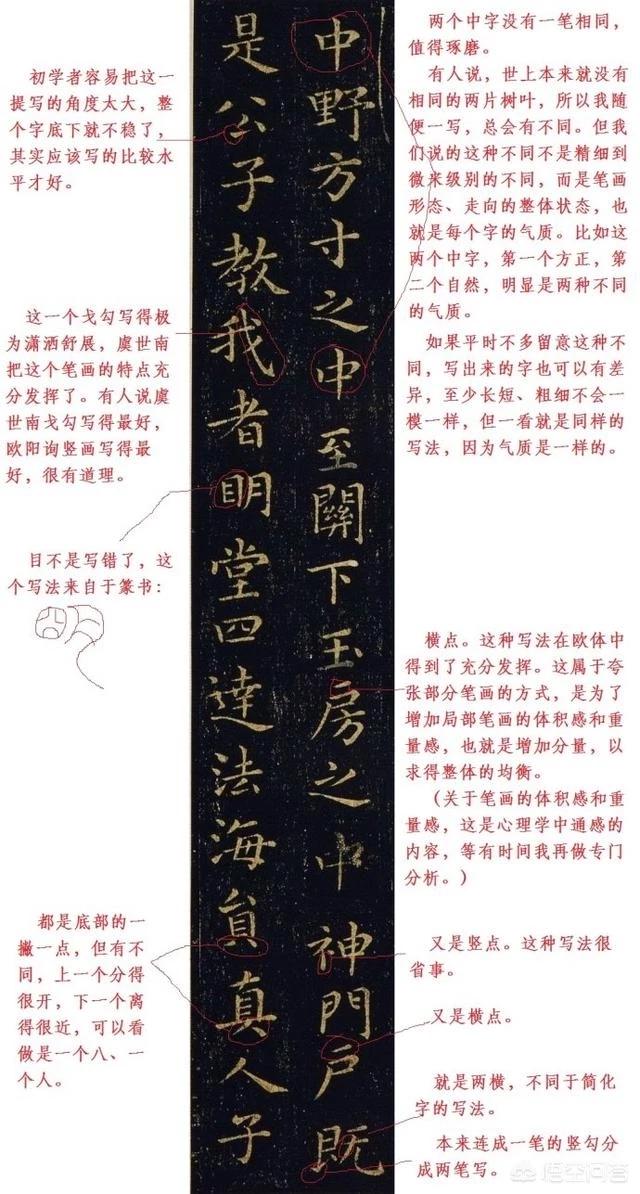 中野方寸之中至關下玉房之中神門戶既
是公子教我者眀堂四達法海員真人子
初学者容易把这一
提写的角度太大，整
个字底下就不稳了，
其实应该写的比较水
平才好。
这一个戈勾写得极
为潇洒舒展，虞世南
把这个笔画的特点充
分发挥了。有人说虞
世南戈勾写得最好，
欧阳询竖画写得最
好，很有道理。
目不是写错了，这
个写法来自于篆书：
都是底部的一
撇一点，但有不
同，上一个分得
很开，下一个离
得很近，可以看
做是一个八、一
个人。
两个中字没有一笔相同，
值得琢磨。
有人说，世上本来就没有
相同的两片树叶，所以我随
便一写，总会有不同。但我
们说的这种不同不是精细到
微米级别的不同，而是笔画
形态、走向的整体状态，也
就是每个字的气质。比如这
两个中字，第一个方正，第
二个自然，明显是两种不同
的气质。
如果平时不多留意这种不
同，写出来的字也可以有差
异，至少长短、粗细不会一
模一样，但一看就是同样的
写法，因为气质是一样的。
横点。这种写法在欧体中
得到了充分发挥。这属于夸
张部分笔画的方式，是为了
增加局部笔画的体积感和重
量感，也就是增加分量，以
求得整体的均衡。
（关于笔画的体积感和重
量感，这是心理学中通感的
内容，等有时间我再做专门
分析。）
又是竖点。这种写法很
省事。
又是横点。
就是两横，不同于简化
字的写法。
本来连成一笔的竖勾分
成两笔写。
悟空问答